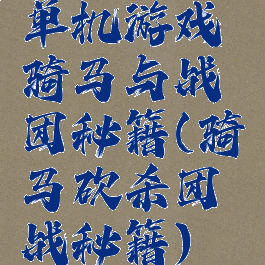 单机游戏
骑马与战
团秘籍(骑
马砍杀团
战秘籍)